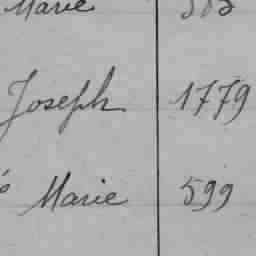 Marie
Joseph 1779
Marie 599